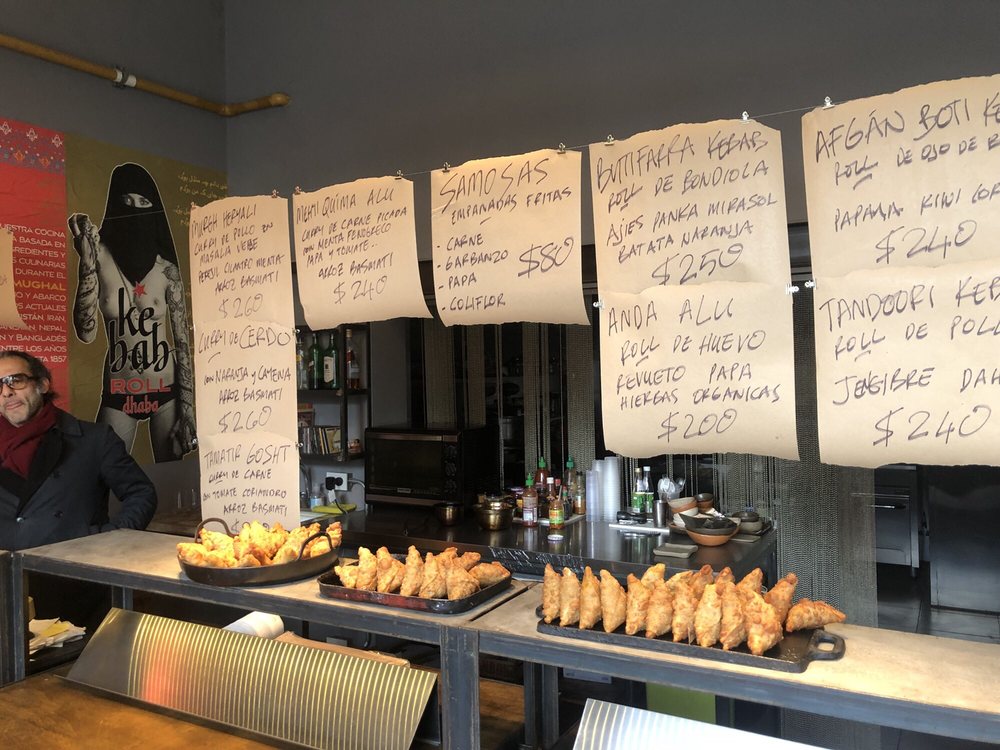 UESTRA COCINA
A BASADA EN
REDIENTES Y
S CULINARIAS
DURANTE EL
MUGHAL
Y ABARCO
S ACTUALES
STÁN, IRAN,
NEPAL,
N Y BANGLADÉS
ENTRE LOS AÑOS
STA 1857
ke
bab
ROLL
dhaba
MURGH HERYALI
CURRY DE POLLO EN
MASALA VERDE
PEREJIL CILANTRO MENTA
ARROZ BASMATI
$260
CURRY DE CERDO
CON NARANJA Y CAYENA
ARROZ BASMATI
$260
TAMATIR GOSHT
CURRY DE CARNE
CON TOMATE CORIANDRO
ARROZ BASMATI
$
MEHTI QUIMA ALU
CURRY DE CARNE PICADA
CON MENTA FENOGRECO
PAPA Y TOMATE..
ARROZ BASMATI
$240
SAMOSAS
EMPANADAS FRITAS
- CARNE
- GARBANZO $80
- PAPA
- COLIFLOR
BUTIFARRA KEBAB
ROLL DE BONDIOLA
AJÍES PANKA MIRASOL
BATATA NARANJA
$250
ANDA ALU
ROLL DE HUEVO
REVUETO PAPA
HIERBAS ORGANICAS
$200
AFGÁN BOTI KE
ROLL DE OJO DE B
PAPAYA KIWI COR
$240
TANDOORI KEB
ROLL DE POLL
JENGIBRE DAH
$240